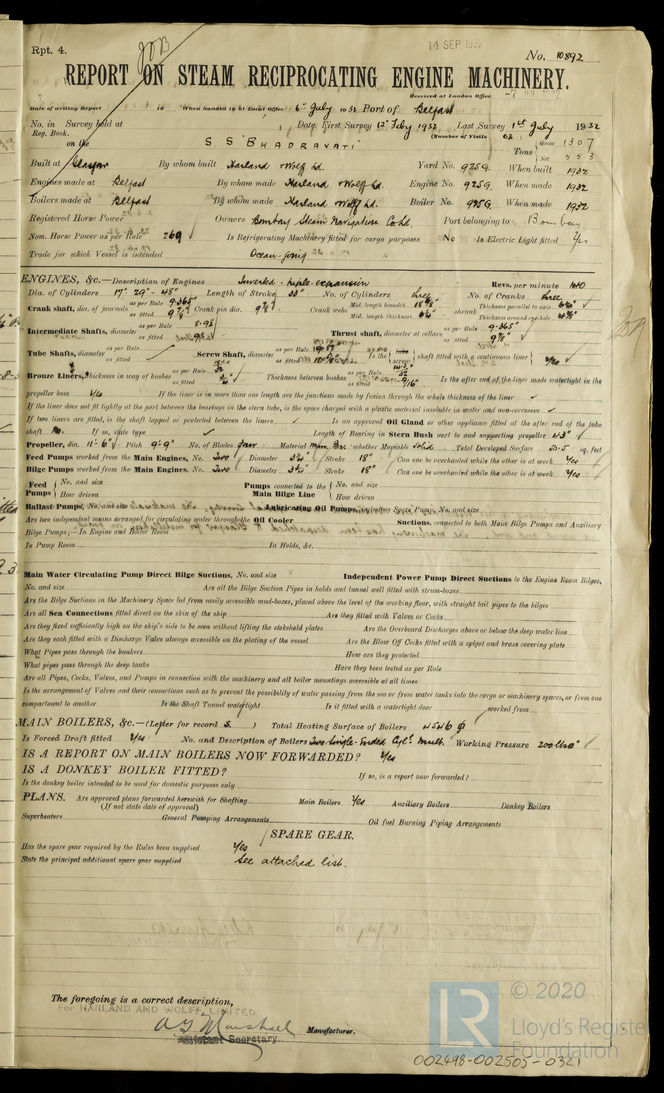 Rpt. 4.
14 SEP 1932
No. 10892
REPORT ON STEAM RECIPROCATING ENGINE MACHINERY.
Received at London Office
Date of writing Report 19 When handed in at Local Office 6th July 1932 Port of Belfast
No. in Survey held at Date: First Survey 12th Feby 1932 Last Survey 1st July 1932
Reg. Book. (Number of Visits 63
on the S.S "BHADRAVATI" Tons Gross 1307
Net 553
Built at Glasgow By whom built Harland & Wolff Ld. Yard No. 925G. When built 1932
Engines made at Belfast By whom made Harland & Wolff Ld. Engine No. 925G. When made 1932
Boilers made at Belfast By whom made Harland & Wolff Ld. Boiler No. 925G. When made 1932
Registered Horse Power Owners Bombay Steam Navigation Co Ld. Port belonging to Bombay
Nom. Horse Power as per Rule 269 Is Refrigerating Machinery fitted for cargo purposes No Is Electric Light fitted Yes
Trade for which Vessel is intended Ocean-going
ENGINES, &c.—Description of Engines Inverted - triple-expansion Revs. per minute
Dia. of Cylinders 17" 29" - 48" Length of Stroke 33" No. of Cylinders three No. of Cranks three
Crank shaft, dia. of journals as per Rule 9.365" as fitted 9⅞" Crank pin dia. 9⅞" Crank webs Mid. length breadth Mid. length thickness shrunk Thickness parallel to axis Thickness around eye-hole
Intermediate Shafts, diameter as per Rule 8.92 as fitted Thrust shaft, diameter at collars as per Rule 9.365" as fitted 9⅞"
Tube Shafts, diameter as per Rule as fitted Screw Shaft, diameter as per Rule as fitted Is the screw shaft fitted with a continuous liner Yes
Bronze Liners, thickness in way of bushes as per Rule as fitted Thickness between bushes as per Rule as fitted 9/16" Is the after end of the liner made watertight in the
propeller boss Yes If the liner is in more than one length are the junctions made by fusion through the whole thickness of the liner
If the liner does not fit tightly at the part between the bearings in the stern tube, is the space charged with a plastic material insoluble in water and non-corrosive
If two liners are fitted, is the shaft lapped or protected between the liners Is an approved Oil Gland or other appliance fitted at the after end of the tube
shaft No. If so, state type Length of Bearing in Stern Bush next to and supporting propeller 43"
Propeller, dia. 11'-6" Pitch 9'-9" No. of Blades four Material Man. Bze. whether Moveable Solid Total Developed Surface 53.5 sq. feet
Feed Pumps worked from the Main Engines, No. Two Diameter Stroke 18" Can one be overhauled while the other is at work Yes
Bilge Pumps worked from the Main Engines, No. Two Diameter Stroke 18" Can one be overhauled while the other is at work Yes
Feed Pumps No. and size How driven Pumps connected to the Main Bilge Line No. and size How driven
Ballast Pumps, No. and size Lubricating Oil Pumps, including Spare Pump, No. and size
Are two independent means arranged for circulating water through the Oil Cooler Suctions, connected to both Main Bilge Pumps and Auxiliary
Bilge Pumps;—In Engine and Boiler Room
In Pump Room In Holds, &c.
Main Water Circulating Pump Direct Bilge Suctions, No. and size Independent Power Pump Direct Suctions to the Engine Room Bilges,
No. and size Are all the Bilge Suction Pipes in holds and tunnel well fitted with strum-boxes
Are the Bilge Suctions in the Machinery Space led from easily accessible mud-boxes, placed above the level of the working floor, with straight tail pipes to the bilges
Are all Sea Connections fitted direct on the skin of the ship Are they fitted with Valves or Cocks
Are they fixed sufficiently high on the ship's side to be seen without lifting the stokehold plates Are the Overboard Discharges above or below the deep water line
Are they each fitted with a Discharge Valve always accessible on the plating of the vessel Are the Blow Off Cocks fitted with a spigot and brass covering plate
What Pipes pass through the bunkers How are they protected
What pipes pass through the deep tanks Have they been tested as per Rule
Are all Pipes, Cocks, Valves, and Pumps in connection with the machinery and all boiler mountings accessible at all times
Is the arrangement of Valves and their connections such as to prevent the possibility of water passing from the sea or from water tanks into the cargo or machinery spaces, or from one
compartment to another Is the Shaft Tunnel watertight Is it fitted with a watertight door worked from
MAIN BOILERS, &c.—(Letter for record S. ) Total Heating Surface of Boilers 4546 ф
Is Forced Draft fitted Yes No. and Description of Boilers Two Single-Ended Cyl'l Mult. Working Pressure 200 lbs □"
IS A REPORT ON MAIN BOILERS NOW FORWARDED? Yes
IS A DONKEY BOILER FITTED? If so, is a report now forwarded?
Is the donkey boiler intended to be used for domestic purposes only
PLANS. Are approved plans forwarded herewith for Shafting Main Boilers Yes Auxiliary Boilers Donkey Boilers
(If not state date of approval)
Superheaters General Pumping Arrangements Oil fuel Burning Piping Arrangements
SPARE GEAR.
Has the spare gear required by the Rules been supplied Yes
State the principal additional spare gear supplied See attached list.
The foregoing is a correct description,
For HARLAND AND WOLFF, LIMITED
A G Marshall Manufacturer.
Assistant Secretary
LR © 2020
Lloyd's Register
Foundation
002498-002505-0321